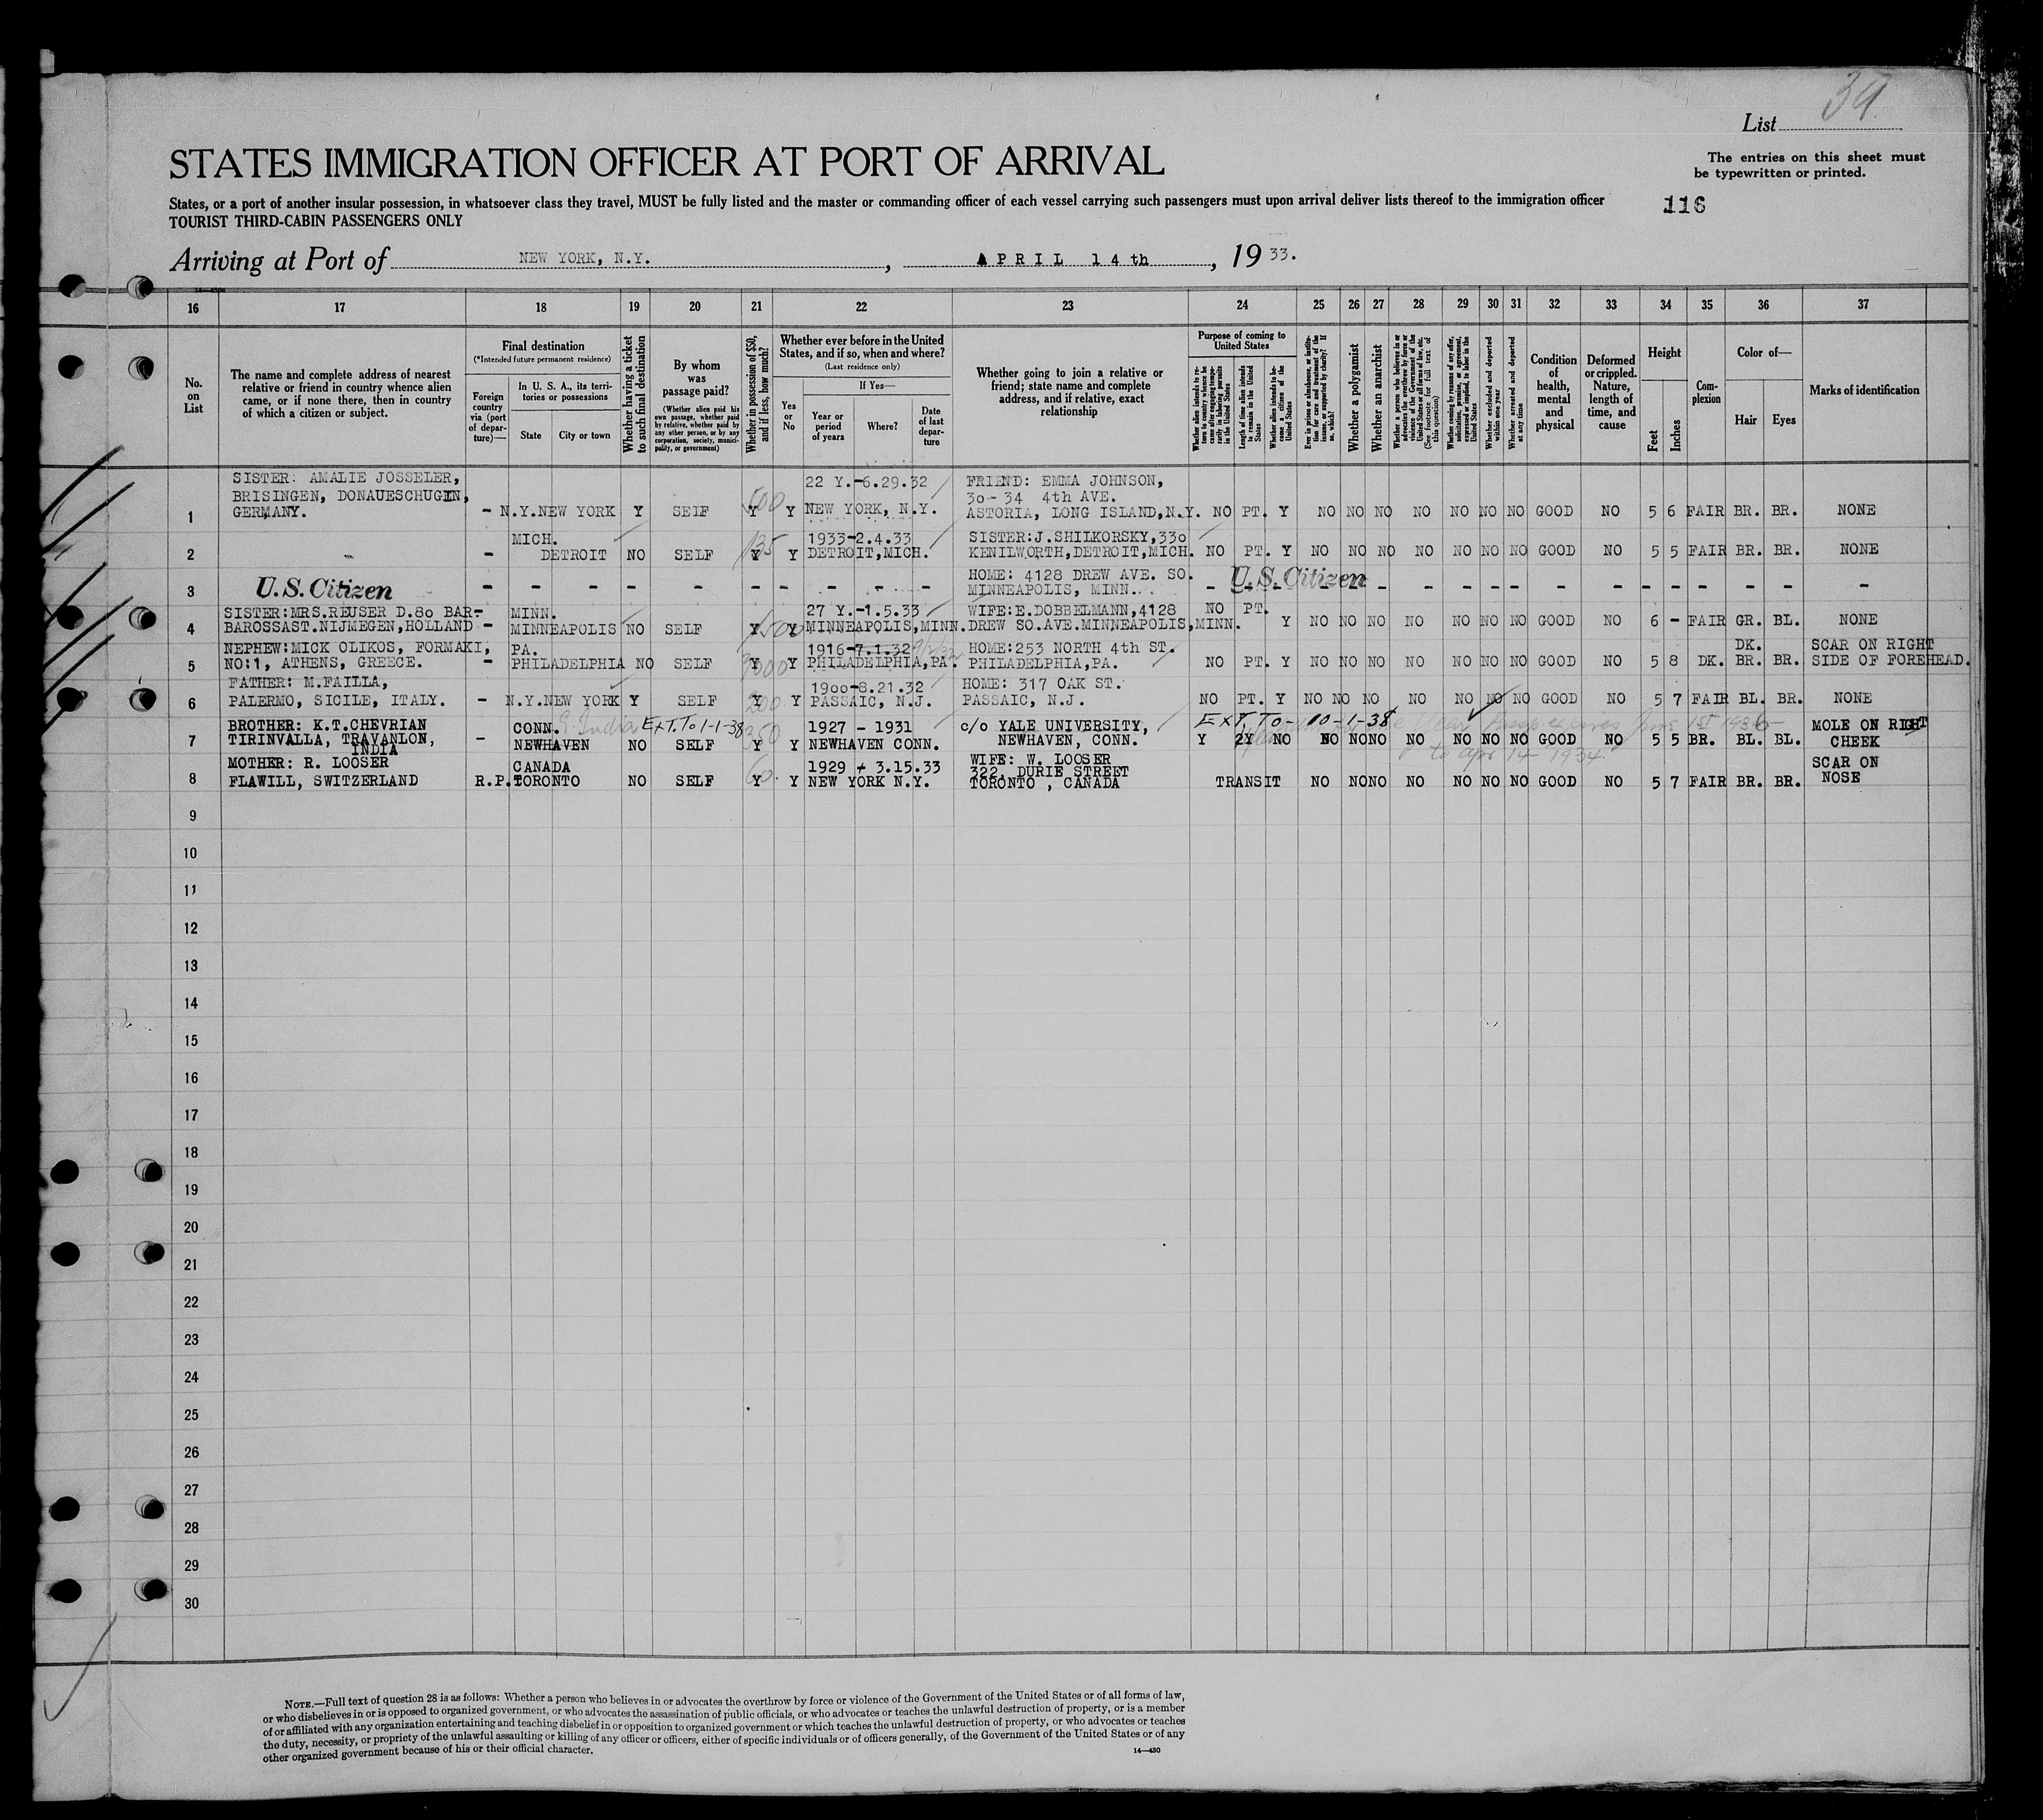 39
List
STATES IMMIGRATION OFFICER AT PORT OF ARRIVAL
The entries on this sheet must
be typewritten or printed.
States, or a port of another insular possession, in whatsoever class they travel, MUST be fully listed and the master or commanding officer of each vessel carrying such passengers must upon arrival deliver lists thereof to the immigration officer
TOURIST THIRD-CABIN PASSENGERS ONLY
116
Arriving at Port of NEW YORK, N.Y. , APRIL 14th , 19 33.
16 17 18 19 20 21 22 23 24 25 26 27 28 29 30 31 32 33 34 35 36 37
No. on List
The name and complete address of nearest relative or friend in country whence alien came, or if none there, then in country of which a citizen or subject.
Final destination
(*Intended future permanent residence)
Foreign country via (port of departure)—
In U. S. A., its territories or possessions
State
City or town
Whether having a ticket to such final destination
By whom was passage paid?
(Whether alien paid his own passage, whether paid by relative, whether paid by any other person, or by any corporation, society, municipality, or government)
Whether in possession of $50, and if less, how much?
Whether ever before in the United States, and if so, when and where?
(Last residence only)
Yes or No
If Yes—
Year or period of years
Where?
Date of last departure
Whether going to join a relative or friend; state name and complete address, and if relative, exact relationship
Purpose of coming to United States
Whether alien intends to return to country whence he came after engaging temporarily in laboring pursuits in the United States
Length of time alien intends to remain in the United States
Whether alien intends to become a citizen of the United States
Ever in prison or almshouse, or institution for care and treatment of the insane, or supported by charity? If so, which?
Whether a polygamist
Whether an anarchist
Whether a person who believes in or advocates the overthrow by force or violence of the Government of the United States or all forms of law, etc. (See footnote for full text of this question)
Whether coming by reasons of any offer, solicitation, promise, or agreement, expressed or implied, to labor in the United States
Whether excluded and deported within one year
Whether arrested and deported at any time
Condition of health, mental and physical
Deformed or crippled. Nature, length of time, and cause
Height
Feet
Inches
Complexion
Color of—
Hair
Eyes
Marks of identification
SISTER: AMALIE JOSSELER, 22 Y.-6.29.32 FRIEND: EMMA JOHNSON,
BRISINGEN, DONAUESCHUGEN, 500 30-34 4th AVE.
1 GERMANY. - N.Y. NEW YORK Y SELF Y Y NEW YORK, N.Y. ASTORIA, LONG ISLAND, N.Y. NO PT. Y NO NO NO NO NO NO NO GOOD NO 5 6 FAIR BR. BR. NONE
MICH. 135 1933-2.4.33 SISTER: J.SHILKORSKY, 330
2 - DETROIT NO SELF Y Y DETROIT, MICH. KENILWORTH, DETROIT, MICH. NO PT. Y NO NO NO NO NO NO NO GOOD NO 5 5 FAIR BR. BR. NONE
HOME: 4128 DREW AVE. SO.
3 U.S. Citizen - - - - - - - - - MINNEAPOLIS, MINN. - U.S. Citizen - - - - - - - - - - - -
SISTER: MRS.REUSER D.80 BAR- MINN. 27 Y.-1.5.33 WIFE: E.DOBBELMANN, 4128 NO PT.
4 BAROSSAST. NIJMEGEN, HOLLAND - MINNEAPOLIS NO SELF Y 1500 Y MINNEAPOLIS, MINN. DREW SO.AVE. MINNEAPOLIS, MINN. Y NO NO NO NO NO NO NO GOOD NO 6 - FAIR GR. BL. NONE
NEPHEW: MICK OLIKOS, FORMAKI, PA. 1916-7.1.32 HOME: 253 NORTH 4th ST. DK. SCAR ON RIGHT
5 NO:1, ATHENS, GREECE. - PHILADELPHIA NO SELF Y 3000 Y PHILADELPHIA, PA. PHILADELPHIA, PA. NO PT. Y NO NO NO NO NO NO NO GOOD NO 5 8 DK. BR. BR. SIDE OF FOREHEAD.
FATHER: M.FAILLA, 1900-8.21.32 HOME: 317 OAK ST.
6 PALERMO, SICILE, ITALY. - N.Y. NEW YORK Y SELF Y 200 Y PASSAIC, N.J. PASSAIC, N.J. NO PT. Y NO NO NO NO NO NO NO GOOD NO 5 7 FAIR BL. BR. NONE
BROTHER: K.T.CHEVRIAN CONN. E. India EXT. TO 1-1-38 350 1927 - 1931 c/o YALE UNIVERSITY, EXT. TO- 10-1-38 June 1st 1936 MOLE ON RIGHT
7 TIRINVALLA, TRAVANLON, INDIA - NEWHAVEN NO SELF Y Y NEWHAVEN CONN. NEWHAVEN, CONN. Y 2Y NO NO NO NO NO NO NO NO GOOD NO 5 5 BR. BL. BL. CHEEK
to apr 14 - 1934
MOTHER: R. LOOSER CANADA 60. 1929 - 3.15.33 WIFE: W. LOOSER SCAR ON
322, DURIE STREET
8 FLAWILL, SWITZERLAND R.P. TORONTO NO SELF Y Y NEW YORK N.Y. TORONTO , CANADA TRANSIT NO NO NO NO NO NO NO GOOD NO 5 7 FAIR BR. BR. NOSE
9
10
11
12
13
14
15
16
17
18
19
20
21
22
23
24
25
26
27
28
29
30
NOTE.—Full text of question 28 is as follows: Whether a person who believes in or advocates the overthrow by force or violence of the Government of the United States or of all forms of law,
or who disbelieves in or is opposed to organized government, or who advocates the assassination of public officials, or who advocates or teaches the unlawful destruction of property, or is a member
of or affiliated with any organization entertaining and teaching disbelief in or opposition to organized government or which teaches the unlawful destruction of property, or who advocates or teaches
the duty, necessity, or propriety of the unlawful assaulting or killing of any officer or officers, either of specific individuals or of officers generally, of the Government of the United States or of any
other organized government because of his or their official character.
14—430